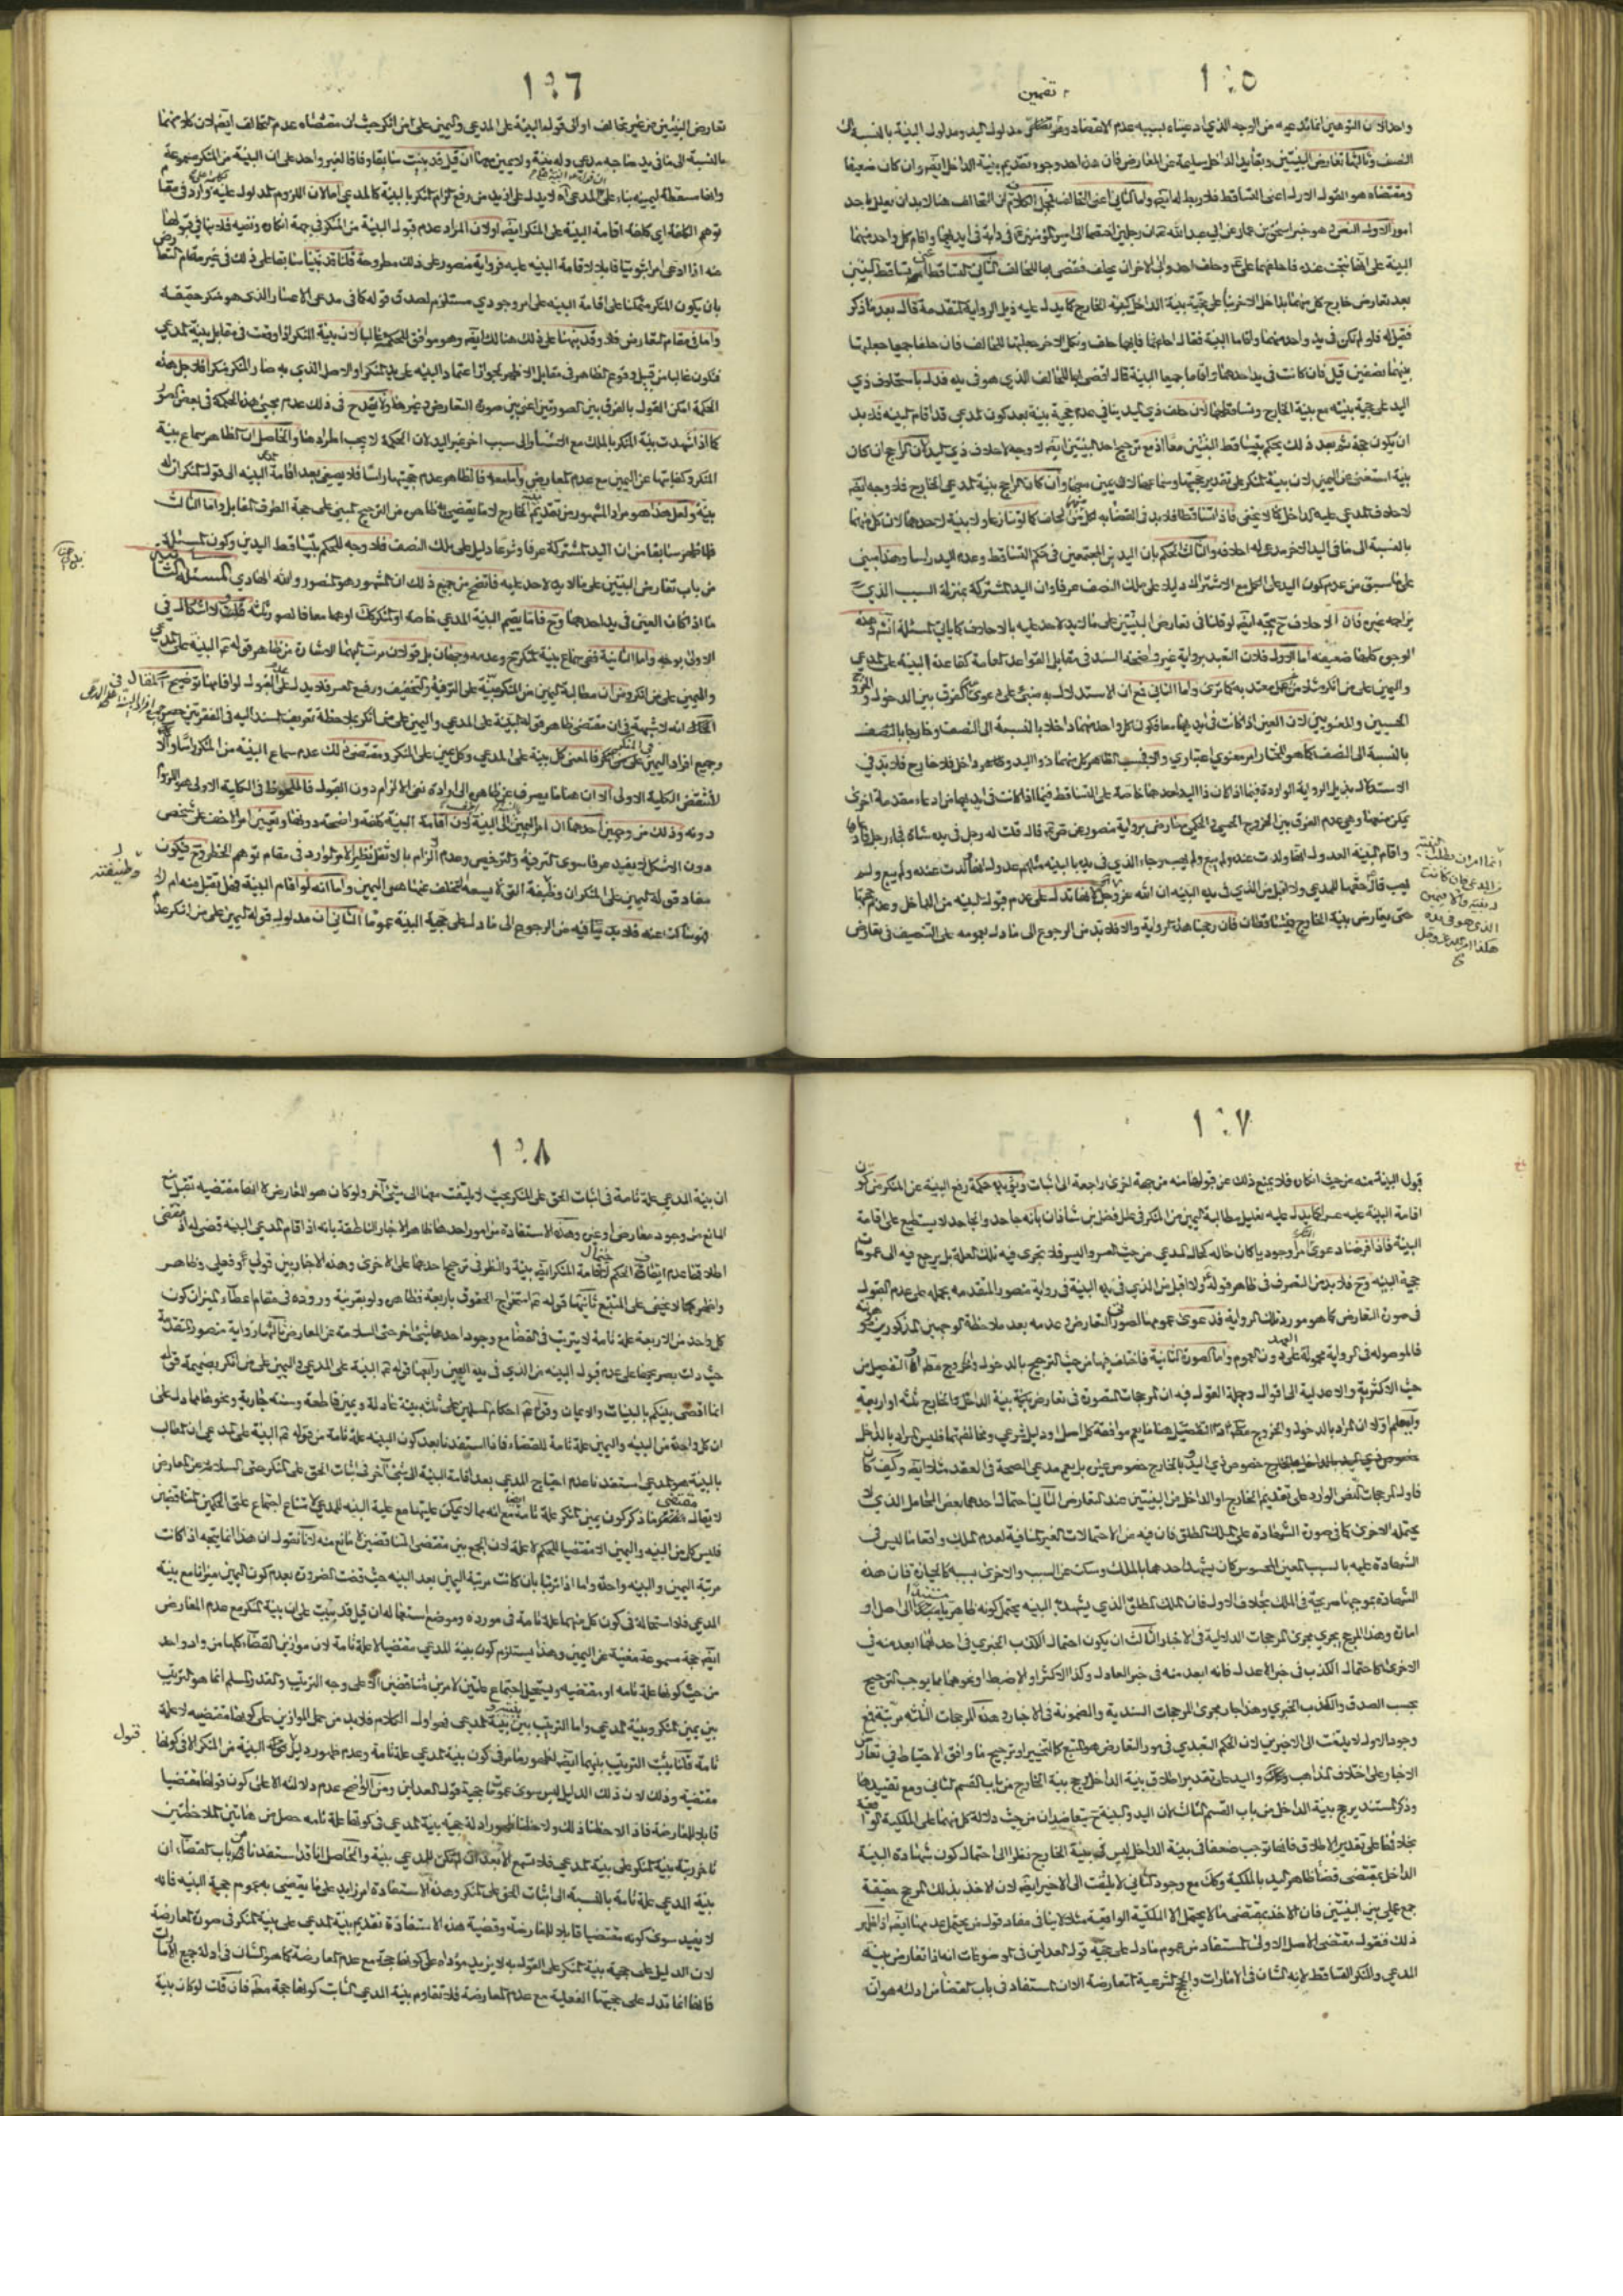 ١٠٥
تضمين
واحد لان التوهين انما يدعيه من الوجه الذي ادعيناه لسببه عدم الاقتضاء وهو مدلول اليد ومدلول البينة بالنسبة الى
النصف وثالثها تعارض البينتين وبقاء يد الداخل سليمة عن المعارض فان هذا احد وجوه تقديم بينة الداخل ايضا وان كان ضعيفا
ومقتضاه هو القول الاول اعنى التساقط فلا ربط له ايضا واما الثاني اعنى التحالف فمحل الكلام ان التحالف هنا لا بد ان يعلل باحد
امور الاول التعبد وهو خبر اسحق بن عمار عن ابي عبد الله ان رجلين اختصما الى امير المؤمنين في دابة في ايديهما واقام كل واحد منهما
البينة على انها نتجت عنده فاحلفهما علي فحلف احدهما وابى الاخر ان يحلف فقضى بها للحالف الثاني التساقط تساقط البينتين
بعد تعارض خارج كل منهما بداخل الاخر بناء على حجية بينة الداخل كبينة الخارج كما يدل عليه ذيل الرواية المتقدمة قال بعد ما ذكر
فقيل له فلو لم تكن في يد واحد منهما واقاما البينة فقال احلفهما فايهما حلف ونكل الاخر جعلتها للحالف فان حلفا جميعا جعلتها
بينهما نصفين قيل فان كانت في يد احدهما واقاما جميعا البينة قال اقضى بها للحالف الذي هو في يده فدل باستحلاف ذي
اليد على حجية بينته مع بينة الخارج وتساقطهما لان حلف ذي اليد ينافي عدم حجية بينة بعد كون المدعي قد اقام البينة فلا بد
ان يكون حجة ثم بعد ذلك يحكم بتساقط البينتين معا اذ مع ترجيح احد البينتين ايضا لا وجه لاحلاف ذي اليد لان الراجح ان كان
بينة استغنى عن اليمين لان بينة المنكر على تقدير حجيتها وسماعها لا يمين معها وان كان الراجح بينة المدعي الخارج فلا وجه ايضا
لاحلاف المدعي عليه الداخل كما لا يخفى فاذا تساقطا فلا بد في القضاء لكل منهما لحاف كما لو تنازعا ولا بينة لاحدهما لان كل منهما
بالنسبة الى ما في اليد الاخر مدعي له احلافه والثالث الحكم بان اليدين المجتمعين في حكم التساقط وعدم اليد راسا وهذا مبنى
على ما سبق من عدم كون اليد على الكل مع الاشتراك دليلا على ملك النصف عرفا وان اليد المشتركة بمنزلة السبب الذي
يزاحمه غيره فان الاحلاف ح يتجه ايضا لو قلنا في تعارض البينتين على ما لا يد لاحد عليه بالاحلاف كما ياتي المسئلة انشا وهذه
الوجوه كلها ضعيفة اما الاول فلان التعبد برواية غير واضحة السند في مقابل القواعد العامة كقاعدة البينة على المدعي
واليمين على من انكر مثلا من غير عمل معتد به كما ترى واما الثاني فمع ان الاستدلال به مبنى على دعوى الفرق بين الدخول والخروج
الحسيين والمعنويين لان العين اذا كانت في ايديهما معا فكون كل واحد منهما داخلا بالنسبة الى النصف وخارجا بالنصف
بالنسبة الى النصف كما هو المختار امر معنوي اعتباري والا فبحسب الظاهر كل منهما ذو اليد وكلاهما داخل فلا خارج فلا بد في
الاستدلال بذيل الرواية الواردة فيما اذا كان ذا اليد احدهما خاصة على التساقط فيما اذا كانت في ايديهما من ادعاء مقدمة اخرى
يمكن منعها وهي عدم الفرق بين الخروج الحسي والحكمي معارض برواية منصور عن ص ع قال قلت له رجل في يده شاة فجاء رجل فادعاها
واقام البينة العدول انها ولدت عنده ولم يبع ولم يهب وجاء الذي في يده بالبينة مثلهم عدول انها ولدت عنده ولم يبع ولم
يهب قال حقها للمدعي ولا اقبل من الذي في يده البينة ان الله عز وجل انها تدل على عدم قبول البينة من الداخل وعدم حجيتها
حتى يعارض بينة الخارج فيتساقطان فان رجحنا هذه الرواية والا فلا بد من الرجوع الى ما دل بعمومه على التنصيف في تعارض
انما امر ان تطلب البينة
من المدعي فان كانت
له بينة والا فيمين
الذي هو في يده
هكذا امر الله عز وجل
١٠٦
تعارض البينتين من غير تحالف او الى قوله البينة على المدعي واليمين على من انكر حيث ان مقتضاه عدم التحالف ايضا لان كلا منهما
بالنسبة الى ما في يد صاحبه مدعي وله بينة ولا يمين معها ان قيل قد بينت سابقا وفاقا لغير واحد على ان البينة من المنكر مسموعة
وانها مسقطة ليمينه بناء على ان المدعي اه لا يدل على ازيد من رفع الزام المنكر بالبينة كالمدعي اما لان اللزوم المدلول عليه وارد في مقام
توهم الكلفة اي كلفة اقامة البينة على المنكر ايضا او لان المراد عدم قبول البينة من المنكر في جهة انكاره ونفيه فلا ينافي قبولها
منه اذا ادعى امرا ثبوتيا قابلا لاقامة البينة عليه فرواية منصور على ذلك مطروحة قلنا قد نبهنا سابقا على ذلك في غير مقام التعارض
بان يكون المنكر متمكنا على اقامة البينة على امر وجودي مستلزم لصدق قوله كما في مدعى الاعسار الذي هو منكر حقيقة
واما في مقام التعارض فلا وقد نبهنا على ذلك هنالك ايضا وهو موافق للحكمة غالبا لان بينة المنكر اذا وقعت في مقابل بينة المدعي
فتكون غالبا من قبيل وقوع الظاهر في مقابل الاظهر لجواز اعتماد البينة على يد المنكر او الاصل الذي به صار المنكر منكرا فلاجل هذه
الحكمة امكن القول بالفرق بين الصورتين اعنى بين صورة التعارض وغيرها ولا يقدح في ذلك عدم مجئ هذه الحكمة في بعض الصور
كما اذا شهدت بينة المنكر بالملك مع الاستناد الى سبب اخر غير اليد لان الحكمة لا يجب اطرادها والحاصل ان الظاهر سماع بينة
المنكر وكفايتها عن اليمين مع عدم المعارض واما معه فالظاهر عدم حجيتها راسا فلا يصغى بعد اقامة المدعى البينه الى قول المنكر ان لي
بينة ولعل هذا هو مراد المشهور من تقديم بينة الخارج لا ما يقتضيه ظاهره من الترجيح المبنى على حجة الطرف المقابل واما الثالث
فلما ظهر سابقا من ان اليد المشتركة عرفا وشرعا دليل على ملك النصف فلا وجه للحكم بتساقط اليدين وكون المسئلة
من باب تعارض البينتين على ما لا يد لاحد عليه فاتضح من جميع ذلك ان المشهور هو المنصور والله الهادي المسئلة الثانية
ما اذا كان العين في يد احدهما وح فاما يقيم البينة المدعي خاصة او المنكر كك او هما معا فالصور ثلثة قلت لا اشكال في
الاولى بوجه واما الثانية ففي سماع بينة المنكر ح وعدمه وجهان بل قولان مرت اليهما الاشارة من ظاهر قوله ع البينة على المدعي
واليمين على من انكر ومن ان مطالبة اليمين من المنكر مبنية على الترفية والتخفيف ورفع العسر فلا يدل على عدم القبول لو اقامها توضيح المقال في
المقام انه لا شبهة في ان مقتضى ظاهر قوله البينة على المدعي واليمين على من انكر بملاحظة تعريف المسند اليه في الفقرتين حصر جميع افراد البينة على المدعي
وجميع افراد اليمين في المنكر فالمعنى كل بينة على المدعي وكل يمين على المنكر ومقتضى ذلك عدم سماع البينة من المنكر راسا والا
لانتقض الكلية الاولى الا ان هنا ما يصرف عن ظاهره الى ارادة نفى الالزام دون القبول فالملحوظ في الكلية الاولى هو اللزوم
دونه وذلك من وجهين احدهما ان امر اليمين الى البينة لان اقامة البينة كلفة واضحة دونها وتعيين امر الاخف على شخص
دون الاشكل لا يفيد عرفا سوى الترفية والترخيص وعدم الزام بالاثقل نظير الامر الوارد في مقام توهم الخطر وح فيكون
مفاد قوله اليمين على المنكر ان وظيفة التي لا يسعه التخلف عنها هى اليمين واما انه لو اقام البينة فهل تقبل منه ام لا
فهو ساكت عنه فلا بد فيه من الرجوع الى ما دل على حجية البينة عموما الثاني ان مدلول قوله اليمين على من انكر عدم
وظيفته
١٠٧
قبول البينة منه من حيث انكاره فلا يمنع ذلك عن قبولها منه من جهة اخرى راجعة الى اثبات ونفي حكمة رفع البينة عن المنكر من كون
اقامة البينة عليه عسرا كما يدل عليه تعليل مطالبة اليمين من المنكر في علل فضل بن شاذان بانه جاحد والجاحد لا يستطيع على اقامة
البينة فاذا فرضنا دعوى المنكر امرا وجوديا كان حاله كحال المدعي من حيث العسر واليسر فلا تجرى فيه تلك العلة بل يرجع فيه الى عمومات
حجية البينه وح فلا بد من التصرف في ظاهر قوله ولا اقبل من الذي في يده البينة في رواية منصور المتقدمة بحمله على عدم القبول
في صورة التعارض كما هو مورد تلك الرواية فدعوى عمومها لصورتى التعارض وعدمه بعد ملاحظة الوجهين المذكورين موهونة
فالموصول في الرواية محمولة على العهد دون العموم واما الصورة الثانية فاختلف فيها من حيث الترجيح بالدخول والخروج مطلقا او التفصيل من
حيث الاكثرية والاعدلية الى اقوال وجملة القول فيه ان المرجحات المتصورة في تعارض بينة الداخل والخارج ثلثة او اربعة
وليعلم اولا ان المراد بالدخول والخروج مطلقا او التفصيل هنا ما يعم موافقة كل اصل ودليل شرعي ومخالفتهما فليس المراد بالداخل
خصوص ذي اليد وبالخارج خصوص غيره بل يعم مدعي الصحة في العقد مثلا ايضا وكيف كان
فاول المرجحات النص الوارد على تقديم الخارج او الداخل من البينتين عند التعارض الثاني احتمال احدهما بعض المحامل الذي لا
يحتمله الاخرى كما في صورة الشهادة على الملك المطلق فان فيه من الاحتمالات الغير المنافية لعدم الملك واقعا ما ليس في
الشهادة عليه بالسبب المعين المحسوس كان يشهد احدهما بالملك وسكت عن السبب والاخرى بسببه كالحيازة فان هذه
الشهادة بموجبها صريحة في الملك بخلاف الاول فان الملك المطلق الذي يشهد به البينه يحتمل كونه ظاهريا مستندا الى اصل او
امارة وهذا المرجح يجري مجرى المرجحات الدلالية في الاخبار الثالث ان يكون احتمال الكذب الخبري في احدهما ابعد منه في
الاخرى كاحتمال الكذب في خبر الاعدل فانه ابعد منه في خبر العادل وكذا الاكثر او الاضبط او نحوهما مما يوجب الترجيح
بحسب الصدق والكذب الخبري وهذا جار مجرى المرجحات السندية والمضمونة في الاخبار وهذه المرجحات الثلثه مرتبة فمع
وجود الاول لا يلتفت الى الاخيرين لان الحكم التعبدي في مورد التعارض هو المتبع كالتخيير او ترجيح ما وافق الاحتياط في تعارض
الاخبار على اختلاف المذاهب واليد على تقدير اطلاق بينة الداخل ترجح بينة الخارج من باب القسم الثاني ومع تقييدها
وذكر المستند يرجح بينة الداخل من باب القسم الثالث لان اليد والبينة ح يتعاضدان من حيث دلالة كل منهما على الملكية الواقعية
بخلافها على تقدير الاطلاق فانها توجب ضعفا في بينة الداخل ليس في بينة الخارج نظرا الى احتمال كون شهادة البينة
الداخل بمقتضى قضاء ظاهر اليد بالملكية وكك مع وجود الثاني لا يلتفت الى الاخير ايضا لان الاخذ بذلك المرجح حقيقة
جمع عملي بين البينتين فان الاخذ بمقتضى ما لا يحتمل الا الملكية الواقعية مثلا لا ينافى مفاد قول من يحتمل عدمها ايضا اذا ظهر
ذلك فنقول مقتضى الاصل الاولى المستفاد من عموم ما دل على حجية قول العدلين في الموضوعات انه اذا تعارض بينة
المدعي والمنكر التساقط لانه الشان في الامارات والحجج الشرعية المتعارضة الا ان المستفاد في باب القضاء من ادلته هو ان
١٠٨
ان بينة المدعي علة تامة في اثبات الحق على المنكر بحيث لا يلتفت معها الى شئ آخر ولو كان هو المعارض لا انها مقتضيه تقبل منع
المانع من وجود معارض او غيره وهذه الاستفادة من امور احدها ظاهر الاخبار الناطقة بانه اذا اقام المدعي البينه قضى له اذ مقتضى
اطلاقها عدم ايقاف الحكم لاحتمال اقامة المنكر ايضا بينة والنظر في ترجيح احدهما على الاخرى وهذه الاخبار بين قولي وفعلي وظاهر
واظهر كما لا يخفى على المتتبع ثانيها قوله ع استخراج الحقوق باربعة فظاهره ولو بقرينة وروده في مقام اعطاء الميزان كون
كل واحد من الاربعة علة تامة لا يترتب في القضاء مع وجود احدها شئ اخر حتى السلامة عن المعارض ثالثها رواية منصور المتقدمة
حيث دلت بصريحها على عدم قبول البينه من الذي في يده العين رابعها قوله ع البينة على المدعي واليمين على من انكر بضميمة قوله
انما اقضى بينكم بالبينات والايمان وقوله ع احكام المسلمين على ثلثة بينة عادلة ويمين قاطعة وسنة جارية ونحوها مما دل على
ان كل واحدة من البينه واليمين علة تامة للقضاء فاذا استفدنا بعد كون البينه علة تامة من قوله ع البينة على المدعي ان المطالب
بالبينة هو المدعي استفدنا عدم احتياج المدعي بعد اقامة البينة الى شئ آخر في اثبات الحق على المنكر حتى السلامة عن المعارض
لا يقال مقتضى ما ذكر كون يمين المنكر علة تامة ايضا مع انه مما لا يمكن عليتها مع علية البينه للمدعي لامتناع اجتماع علتى الحكمين المتناقضين
فليس كل من البينه واليمين الا مقتضيا للحكم لا علة لان الجمع بين مقتضى المتناقضين لا مانع منه لانا نقول ان هذا انما يتجه اذا كانت
مرتبة اليمين والبينه واحدة واما اذا ترتبا بان كانت مرتبة اليمين بعد البينه حيث قضت الضرورة بعدم كون اليمين ميزانا مع بينة
المدعي فلا استحالة في كون كل منهما علة تامة في مورده وموضع استعماله ان قيل قد بينت على ان بينة المنكر مع عدم المعارض
ايضا حجة مسموعة مغنية عن اليمين وهذا يستلزم كون بينة المدعي مقتضيا لا علة تامة لان موازين القضاء كلها من واد واحد
من حيث كونها علة تامه او مقتضيه ويستحيل اجتماع علتين لامرين متناقضين الا على وجه الترتيب والقدر المسلم انما هو الترتيب
بين يمين المنكر وبينة المدعي واما الترتيب بين بينته وبينة المدعي فهو اول الكلام فلا بد من جعل الموازين على كونها مقتضيه لا علة
تامة قلنا يثبت الترتيب بينهما ايضا لظهور ما مر في كون بينة المدعي علة تامة وعدم ظهور دليل قبول البينة من المنكر الا في كونها
مقتضيه وذلك لان ذلك الدليل ليس سوى عمومات حجية قول العدلين ومن الواضح عدم دلالته الا على كون قولهما مقتضيا
قابلا للمعارضة فاذا لاحظنا ذلك ولاحظنا ظهور ادلة حجية بينة المدعي في كونها علة تامه حصل من هاتين الملاحظتين
تاخر رتبة بينة المنكر على بينة المدعي فلا تسمع الا بعد ان لم تكن للمدعي بينة والحاصل انا قد استفدنا من باب القضاء ان
بينة المدعي علة تامة بالنسبة الى اثبات الحق على المنكر وهذه الاستفادة امر زايد على ما يقتضي به عموم حجية البينه فانه
لا يفيد سوى كونه مقتضيا قابلا للمعارضة وقضية هذه الاستفادة تقديم بينة المدعي على بينة المنكر في صورة المعارضة
لان الدليل على حجية بينة المنكر على القول به لا يزيد مؤداه على كونها حجة مع عدم المعارضة كما هو الشان في ادلة جميع الامارات
فانها انما تدل على حجيتها الفعلية مع عدم المعارضة فلا تقاوم بينة المدعي الثابت كونها حجة مطلقا فان قلت لو كان بينة
قبول